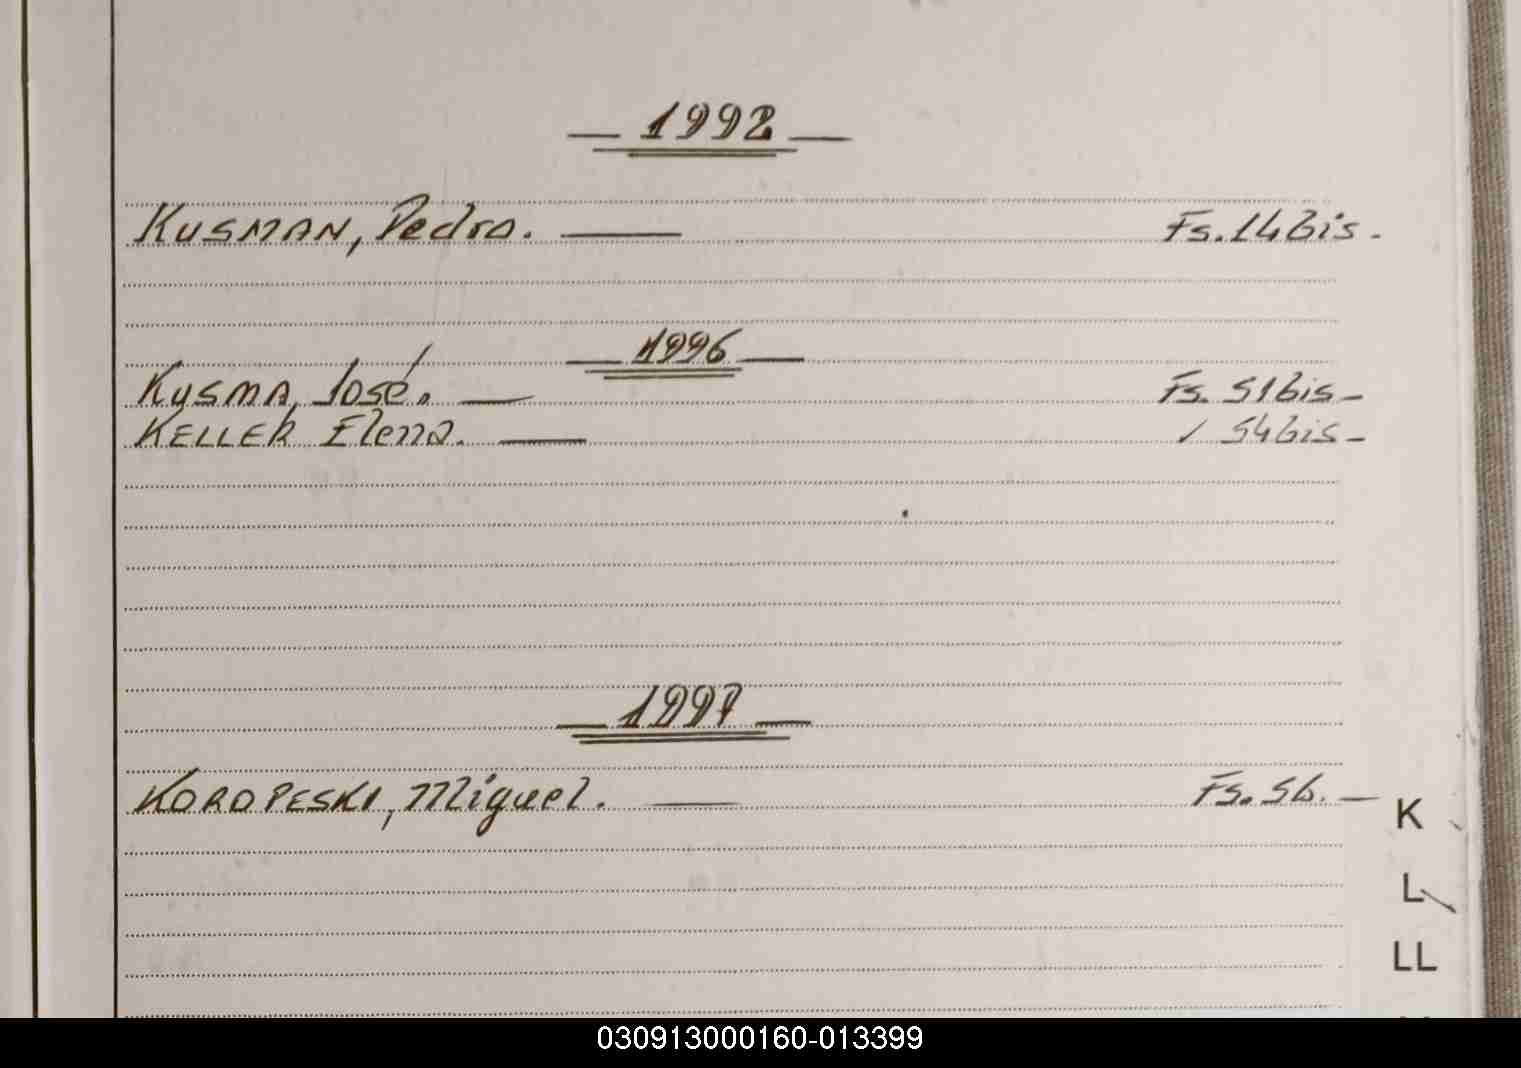 — 1992 —
KUSMAN, Pedro. — Fs. 14 bis. -
— 1996 —
KUSMA, José. — Fs. 51 bis -
KELLER Elena. — / 54 bis -
— 1997 —
KOROPESKI, Miguel. — Fs. 56. —
K
L
LL
030913000160-013399